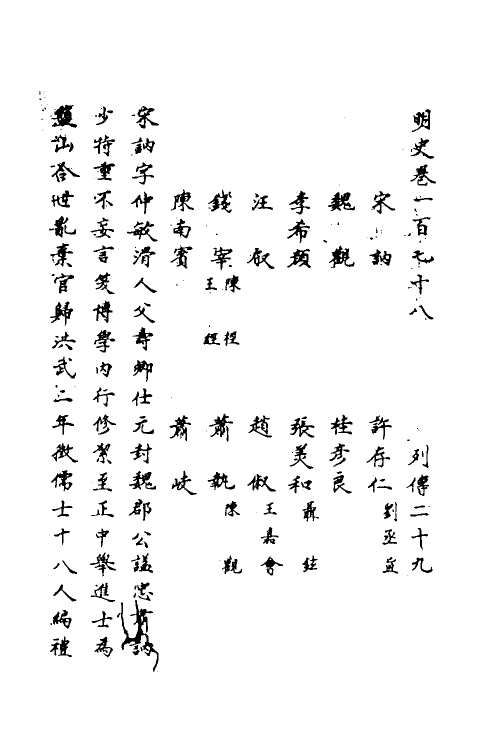 明史卷一百七十八　列傳二十九
宋訥　許存仁 劉丞直
魏觀　桂彥良
李希顏　張美和 聶鉉
汪叡　趙俶 王嘉會
錢宰 陳桱 王經　蕭執 陳觀
陳南賓　蕭岐
宋訥字仲敏滑人父壽卿仕元封魏郡公謚忠肅訥
少持重不妄言笑博學內行修絜至正中舉進士為
鹽山令世亂棄官歸洪武二年徵儒士十八人編禮